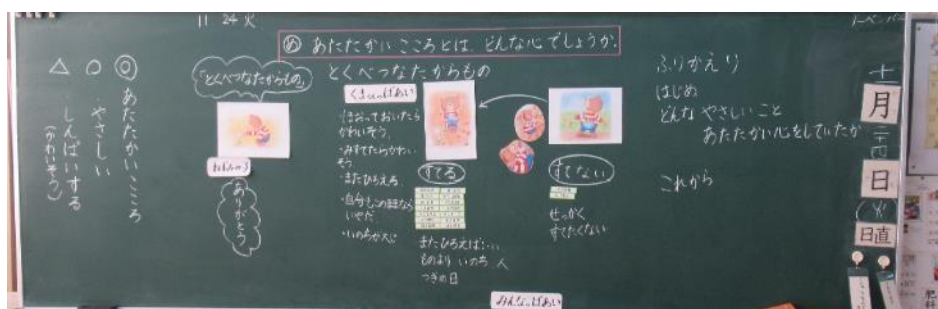 11 24 火
め あたたかいこころとは、どんな心でしょうか。
◎ あたたかいこころ
○ やさしい
△ しんぱいする
(かわいそう)
「とくべつなたからもの」
ありがとう
とくべつなたからもの
・ほおっておいたら
かわいそう。
・みすてたらかわい
そう。
・またひろえる
・自分もこのままなら
いやだ
・いのちが大じ
すてる
またひろえば…
ものより いのち 人
つぎの日
すてない
せっかく
すてたくない
みんなっぱあい
ふりかえり
はじめ
どんな やさしいこと
あたたかい心をしていたか
これから
十一
月
二十四
日
(火)
日直